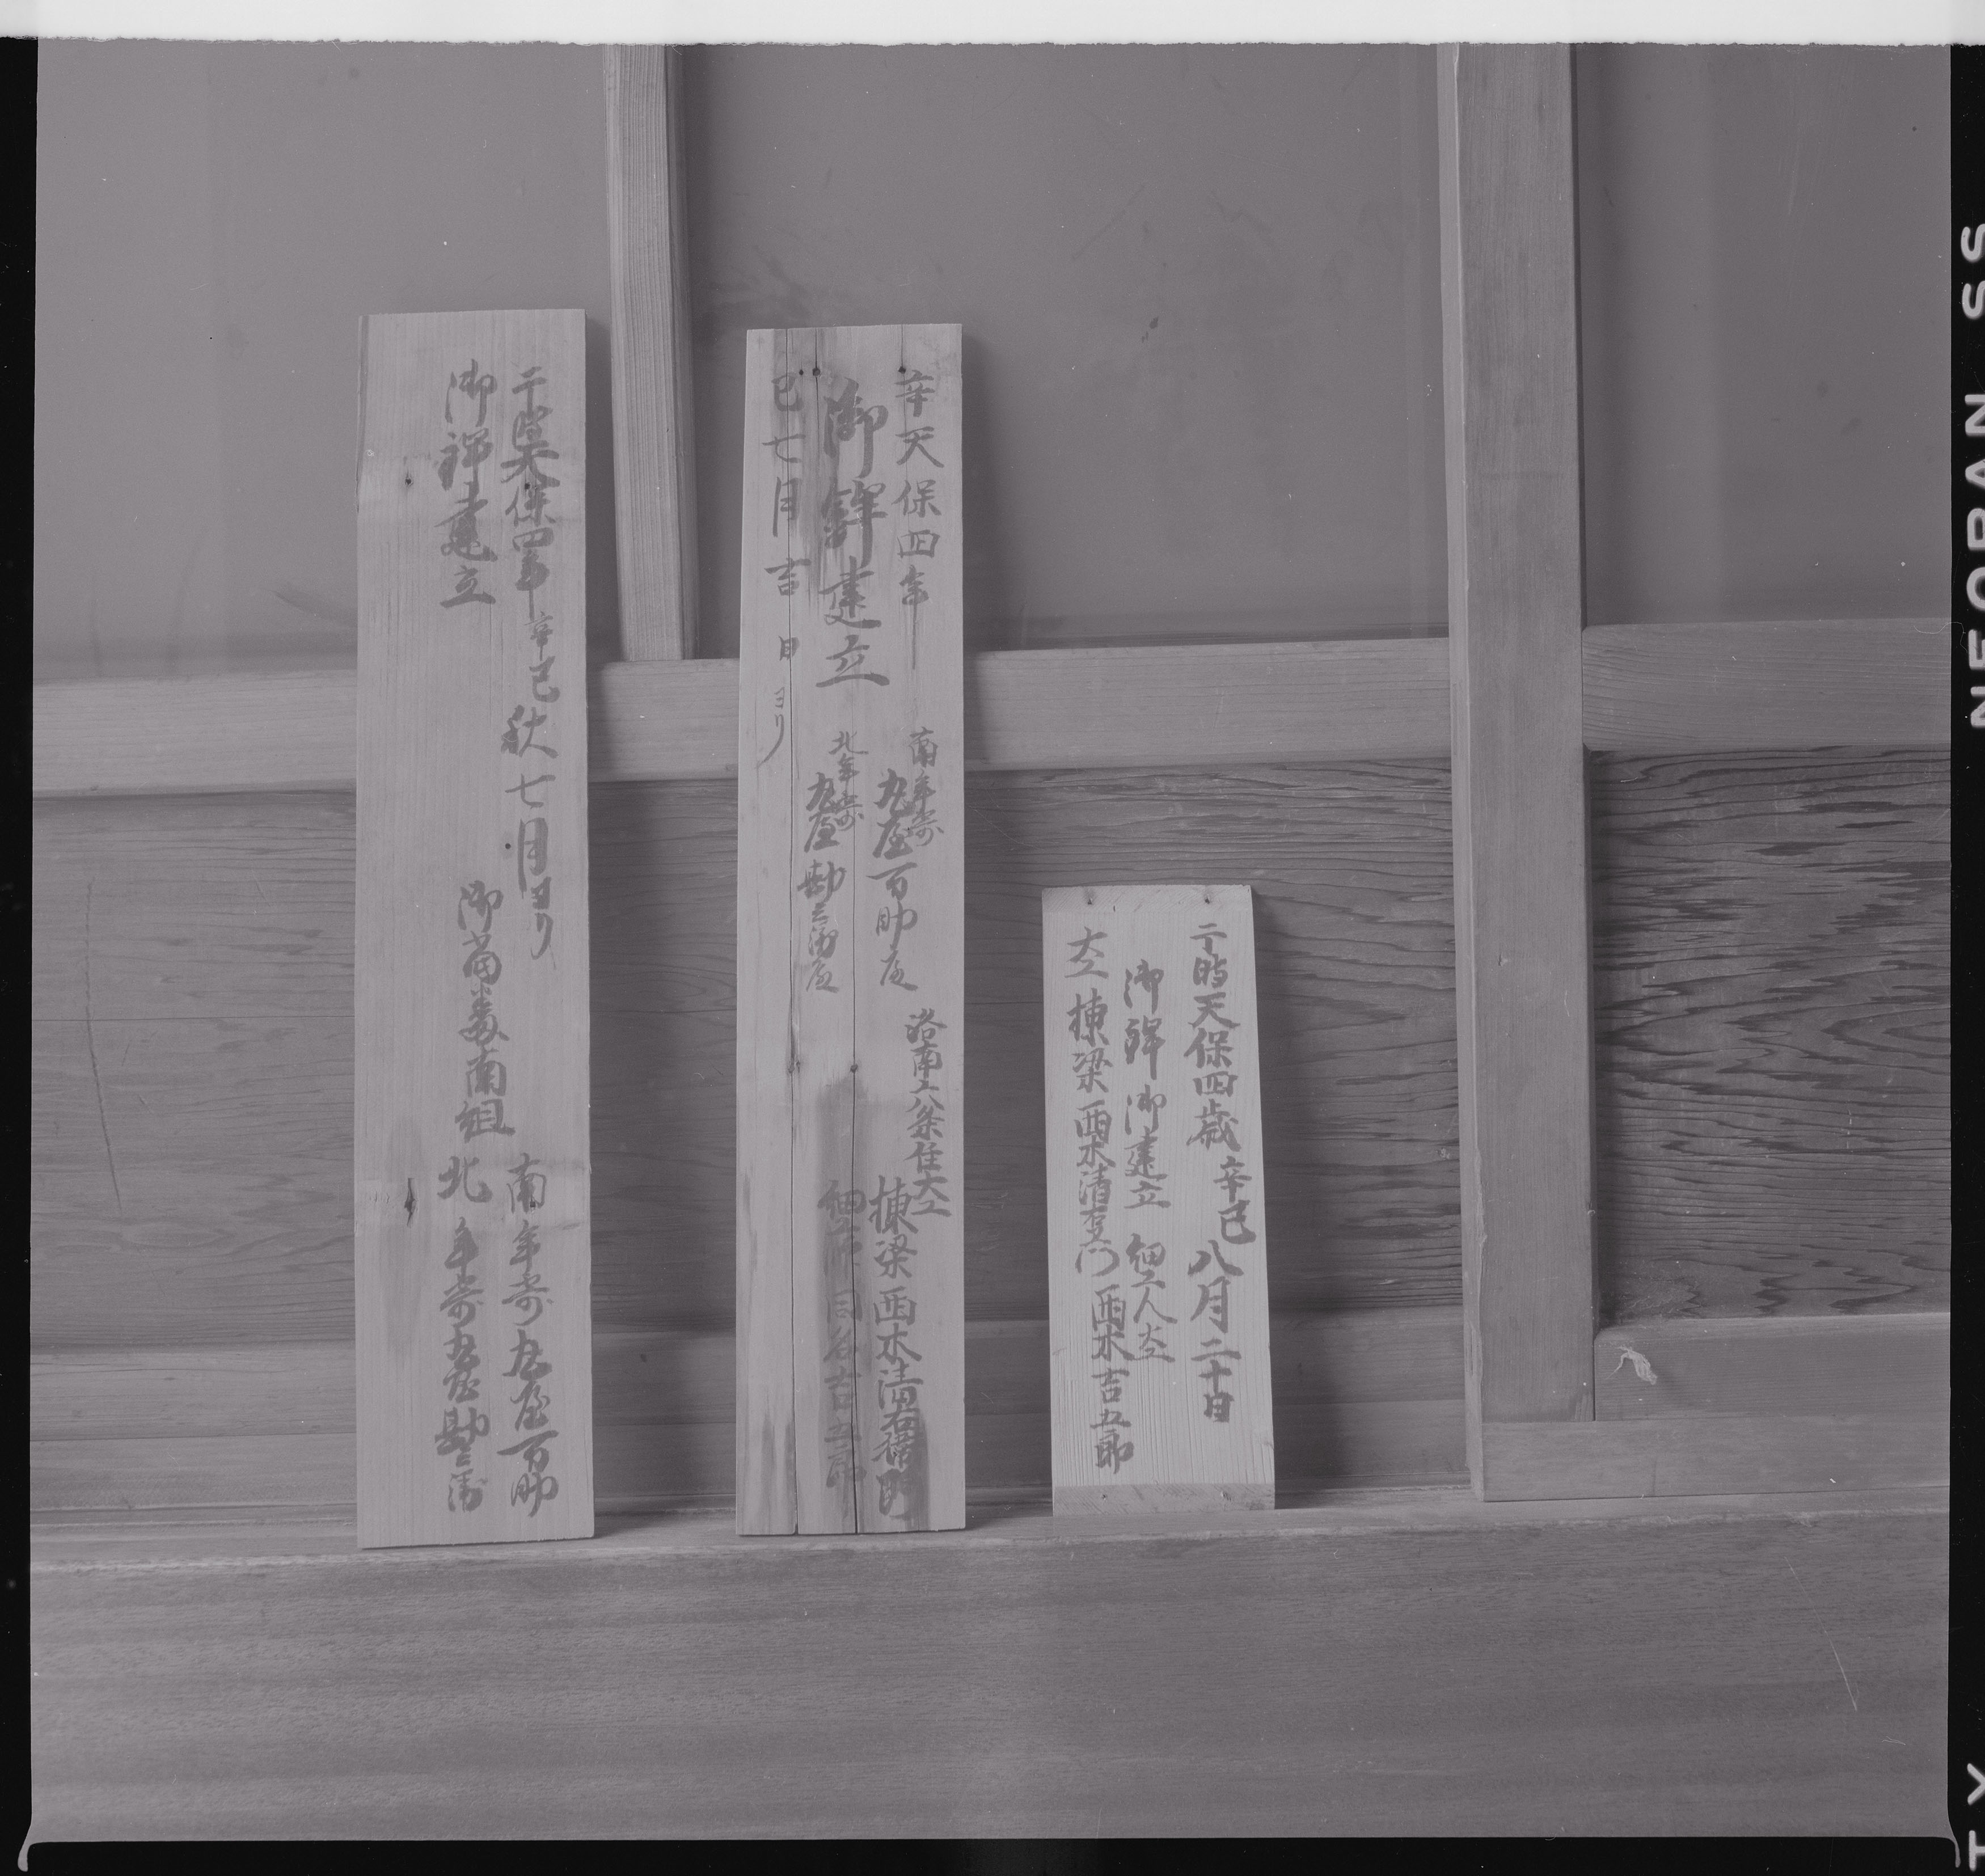 于時天保四歳辛巳八月二十日
御鉾御建立 細工人大工
西木吉五郎
大工棟梁西木清右衛門
辛天保四年
御鉾建立
巳七月吉日ヨリ
南年寄
丸屋百助
北年寄
丸屋勘兵衛
洛南 条住大工
棟梁西木清右衛門
細工 同名吉五郎
于時天保四年辛巳秋七月ヨリ
御鉾建立
御当番南組
南年寄丸屋百助
北年寄丸屋勘兵衛
NEOPAN SS